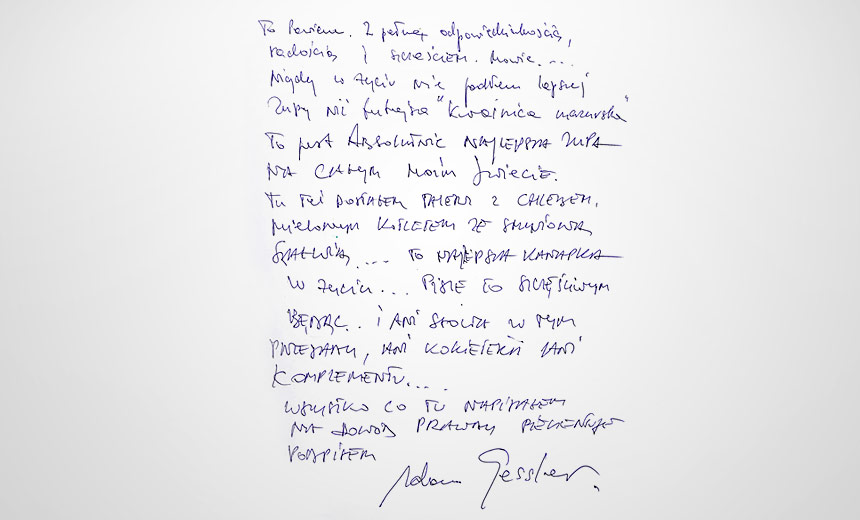 To Powiem. Z pełną odpowiedzialnością,
radością i szczęściem. Mówię....
Nigdy w życiu nie jadłem lepszej
Zupy niż tutejsza "Kwaśnica mazurska"
To jest Absolutnie NAJLEPSZA ZUPA
NA CAŁYM MOIM Świecie.
Tu też DOSTAŁEM TALERZ Z CHLEBEM,
mielonym KOTLETEM ZE
SZAŁWIĄ.... TO NAJLEPSZA KANAPKA
W życiu... PISZĘ TO SZCZĘŚLIWYM
BĘDĄC.. i ANI SŁOWA W TYM
PRZESADY, ANI KOKIETERII ANI
KOMPLEMENTU....
WSZYSTKO CO TU NAPISAŁEM
NA DOWÓD PRAWDY
PODPISEM
Adam Gessler.